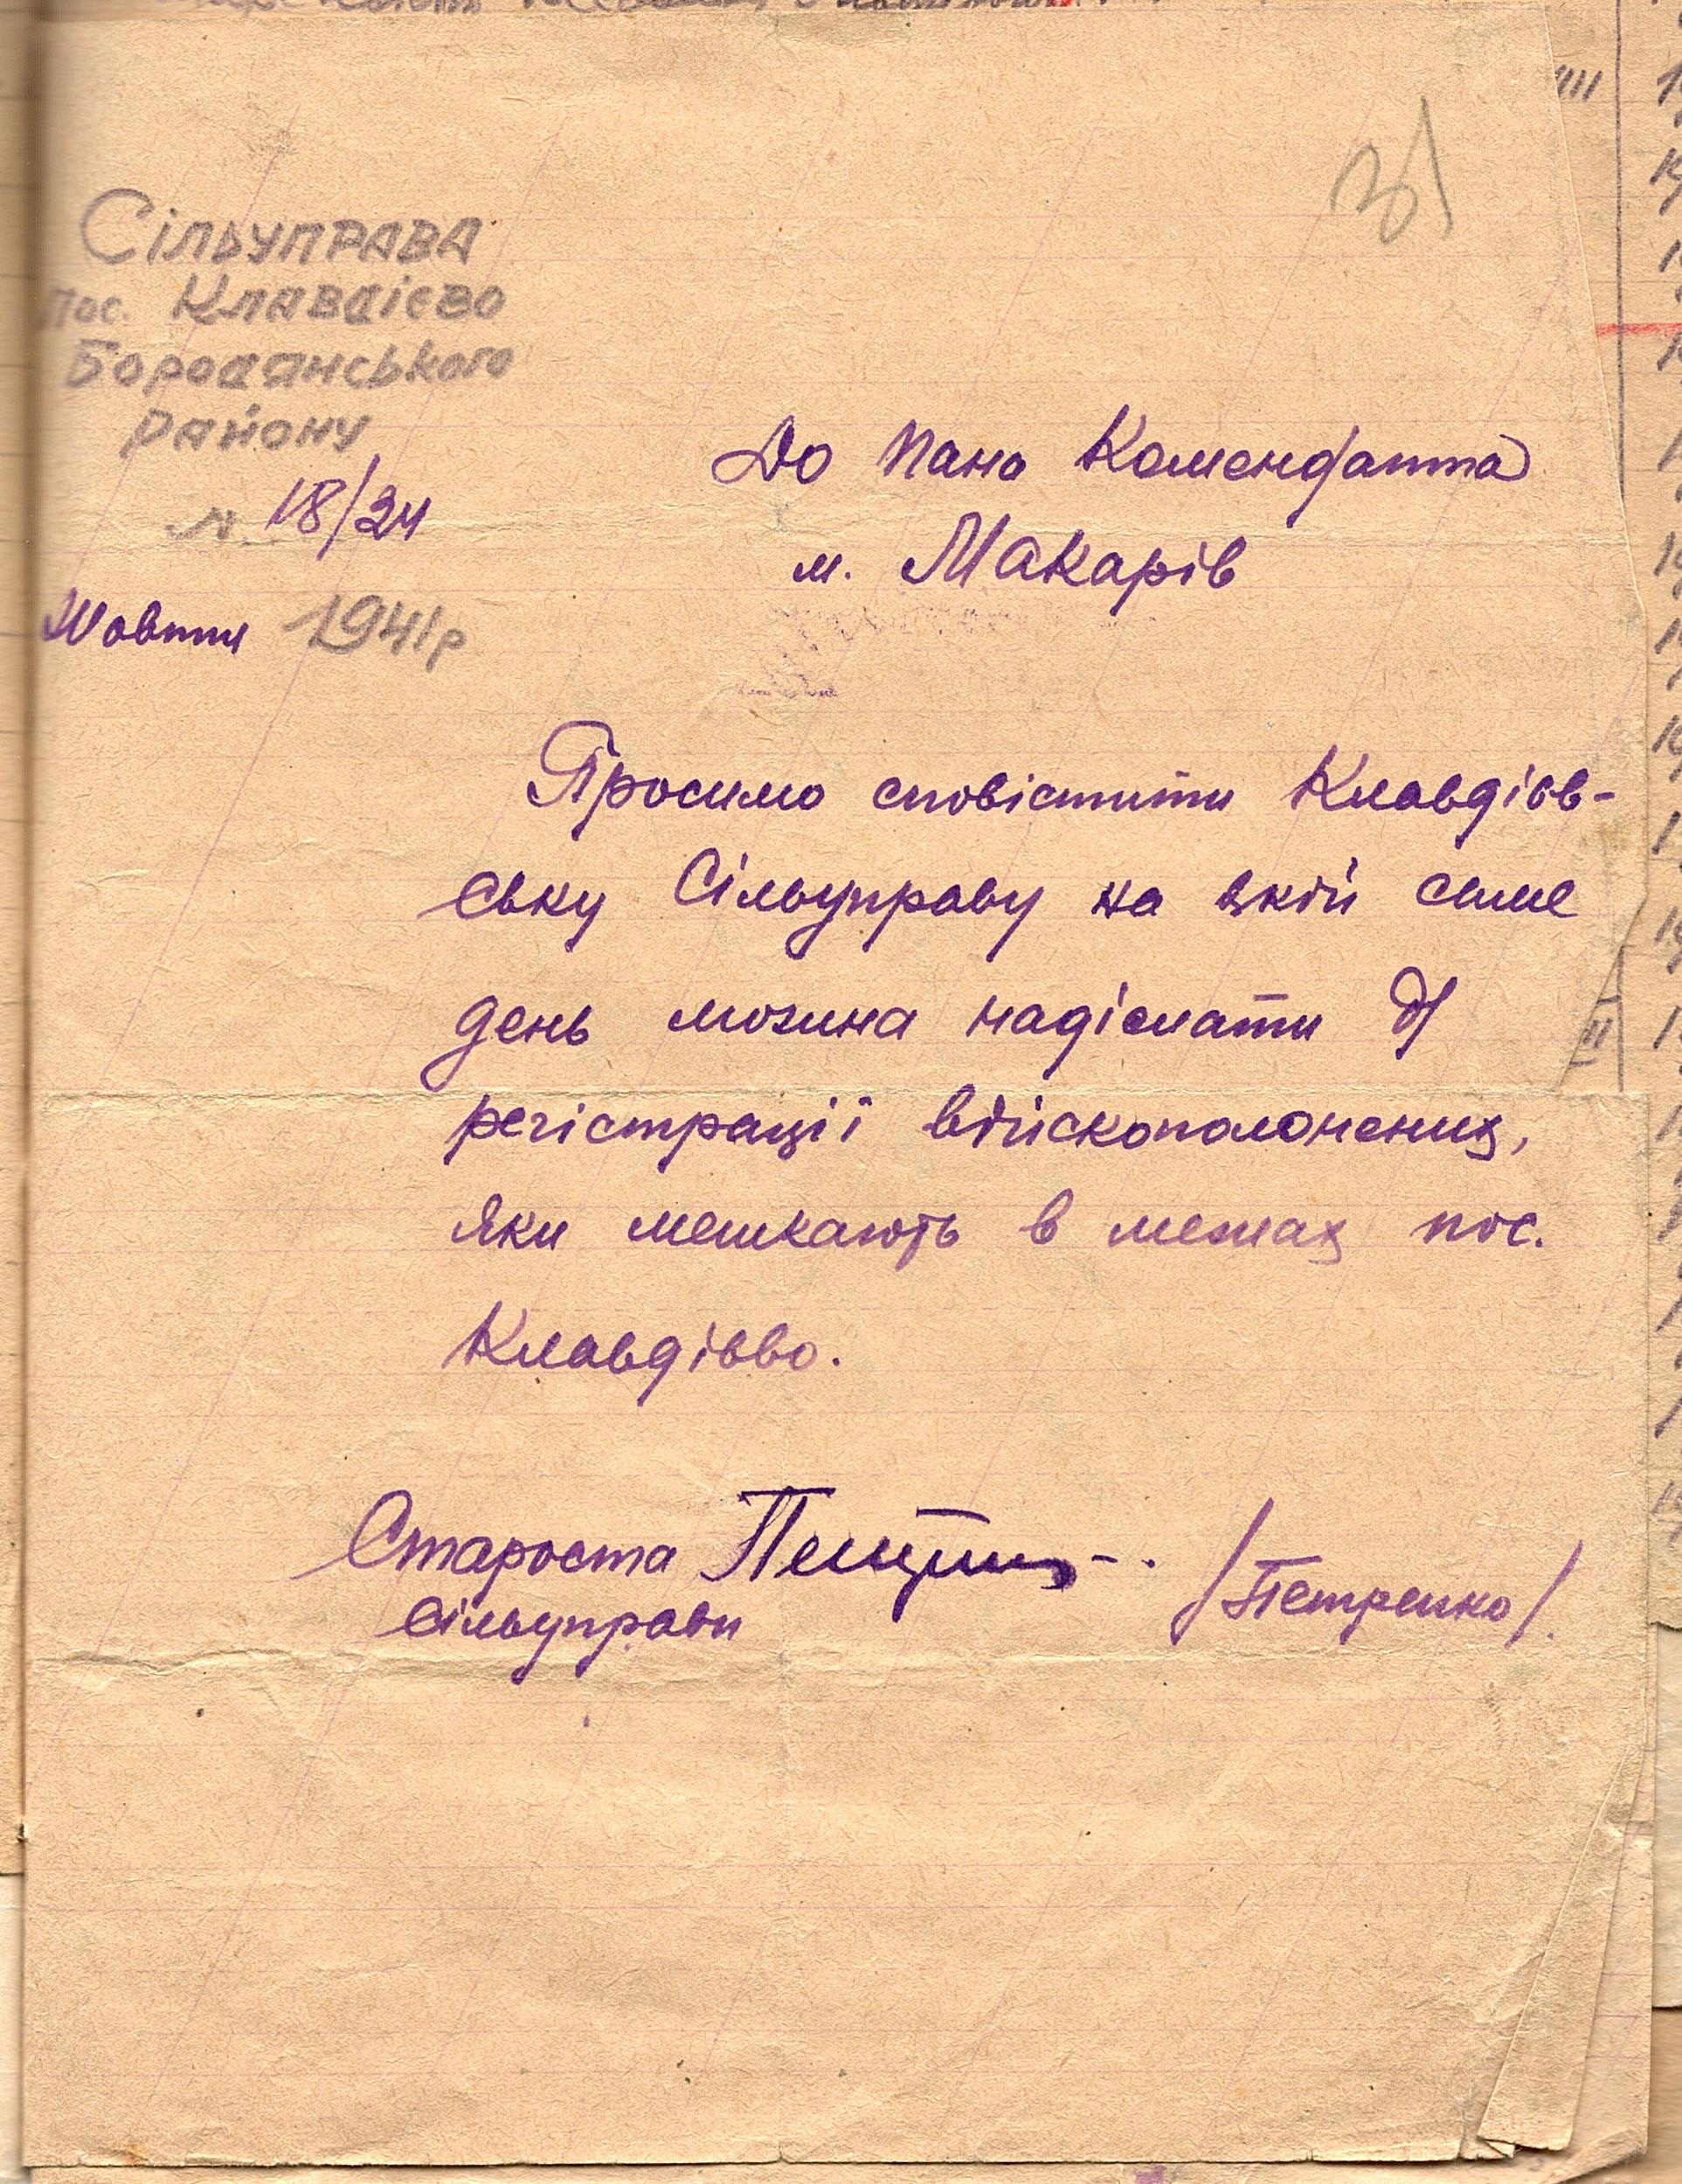 Сільуправа
пос. Клавдієво
Бородянського
району
№ 18/24
Жовтня 1941р
До Пана Коменданта
м. Макарів
Просимо сповістити Клавдієв-
ську Сільуправу на який саме
день можна надіслати д/
регістрації війскополонених,
яки мешкають в межах пос.
Клавдієво.
Староста
Сільуправи
/Петренко/.